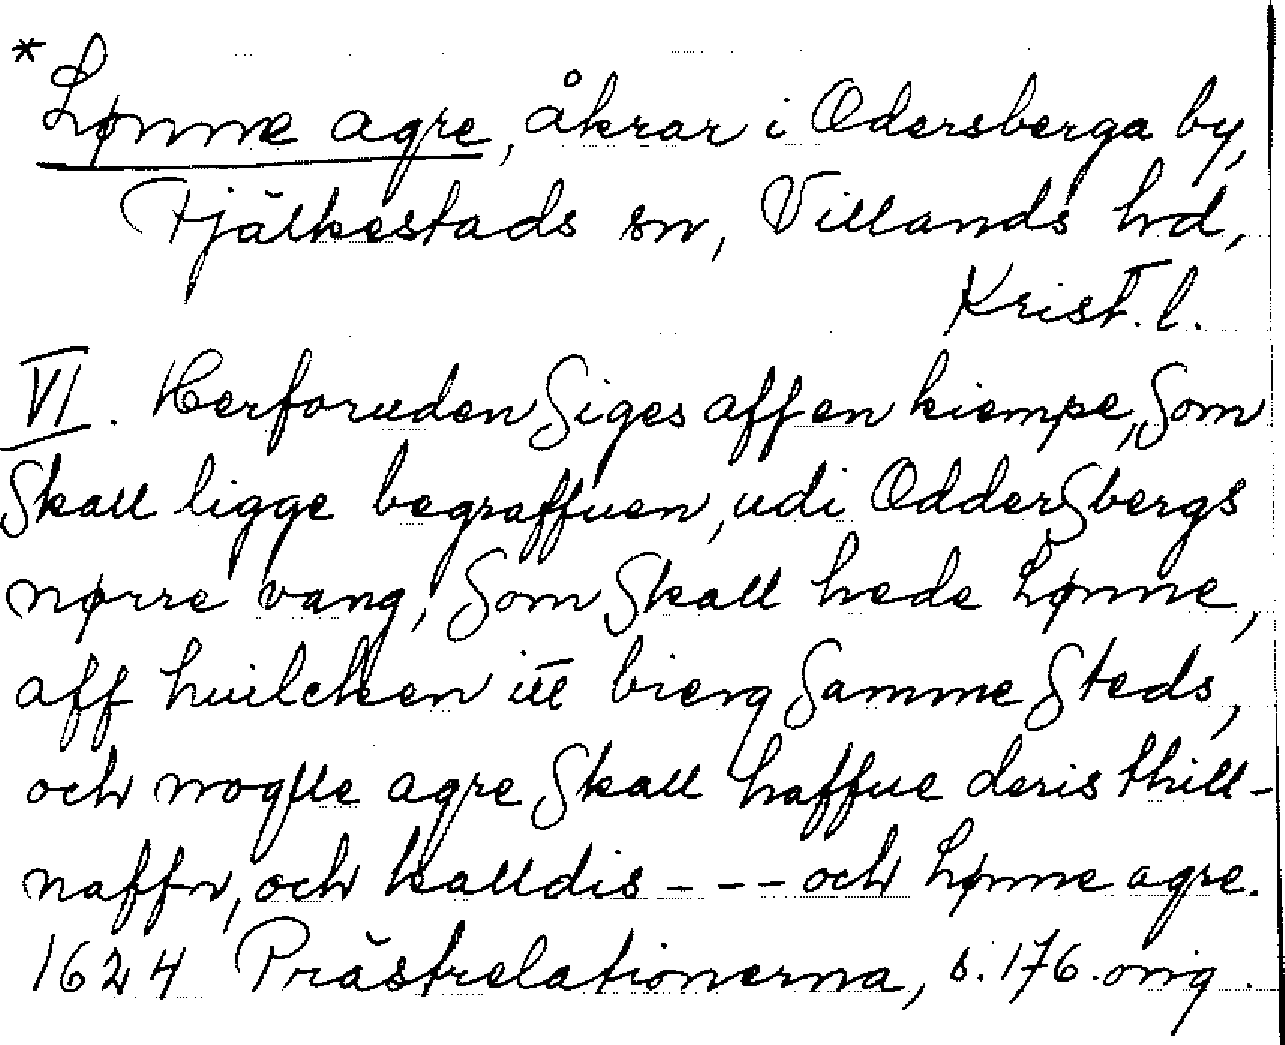 *Lønne agre, åkrar i Odersberga by,
Fjälkestads sn, Villands hd,
Krist. l.
VI. Herforuden Siges aff en kiempe, Som
Skall ligge begraffuen, udi OdderSbergs
nørre vang, Som Skall hede Lønne,
aff huilcken itt bierg Samme Steds,
och nogle agre Skall haffue deris thill-
naffn, och kalldis - - - och Lønne agre.
1624 Prästrelationerna, s. 176. orig.